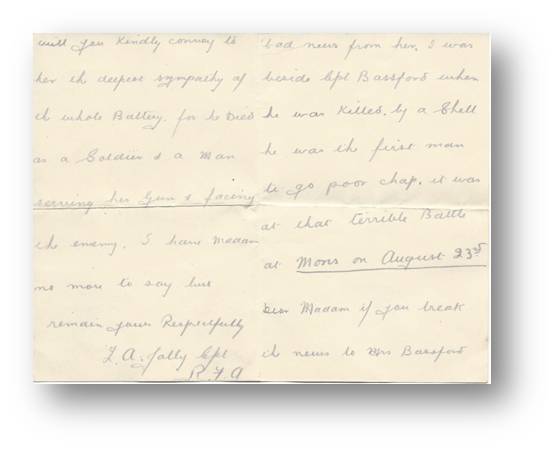 bad news from her. I was
beside Cpl Bassford when
he was killed. by a Shell
he was the first man
to go poor chap. it was
at that terrible Battle
at Mons on August 23rd
Dear Madam if you break
the news to Mrs Bassford
will you kindly convey to
her the deepest sympathy of
the whole Battery. for he Died
as a Soldier & a Man
serving her Gun & facing
the enemy. I have Madam
no more to say but
remain yours Respectfully
A. Cpl
R.F.A